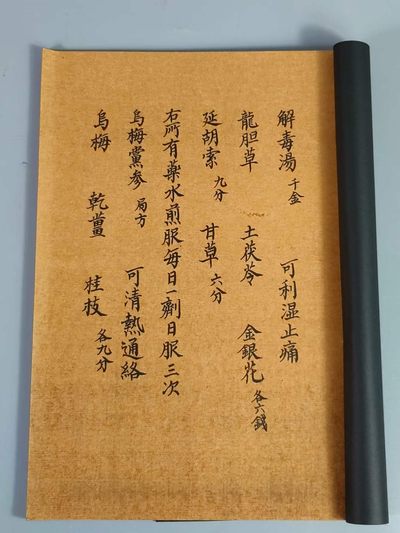 解毒湯 千金 可利湿止痛
龍胆草 土茯苓 金銀花 各六錢
延胡索 九分 甘草 六分
右所有藥水煎服每日一劑日服三次
烏梅黨参 局方 可清熱通絡
烏梅 乾薑 桂枝 各九分